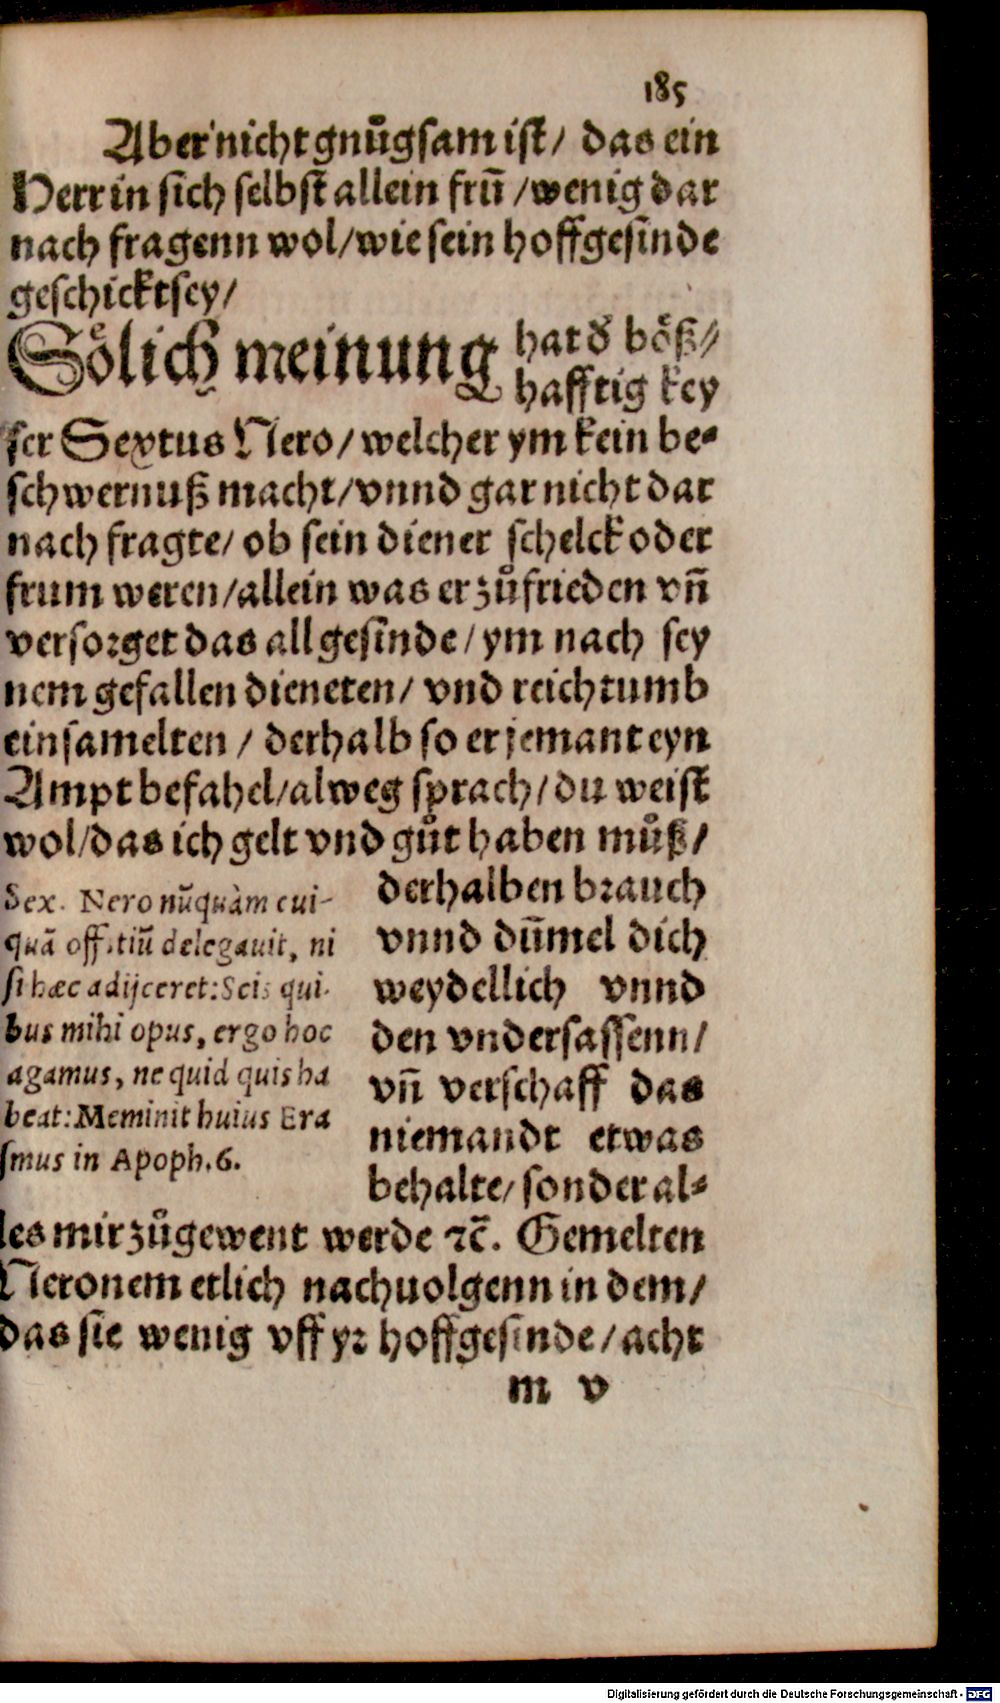 185
Aber nicht gnůgsam ist/ das ein
Herr in sich selbst allein frū /wenig dar
nach fragenn wol/wie sein hoffgesinde
geschickt sey/
Sölich meinung hat d' böß//
hafftig key
ser Sextus Nero/ welcher ym kein be⸗
schwernuß macht/vnnd gar nicht dar
nach fragte/ ob sein diener schelck oder
frum weren/allein was er zůfrieden vñ
versorget das all gesinde/ ym nach sey
nem gefallen dieneten/ vnd reichtumb
einsamelten / derhalb so er jemant eyn
Ampt befahel/alweg sprach/ du weist
wol/das ich gelt vnd gůt haben můß/
derhalben brauch
vnnd dům̃el dich
weydellich vnnd
den vndersassenn/
vñ verschaff das
niemandt etwas
behalte/ sonder al⸗
Sex. Nero nũquàm cui-
quã offitiũ delegauit, ni
si hæc adijceret: Scis qui-
bus mihi opus, ergo hoc
agamus, ne quid quis ha
beat: Meminit huius Era
smus in Apoph. 6.
les mir zůgewent werde ⁊c̃. Gemelten
Neronem etlich nachuolgenn in dem/
das sie wenig vff yr hoffgesinde/ acht
m v
Digitalisierung gefördert durch die Deutsche Forschungsgemeinschaft - DFG